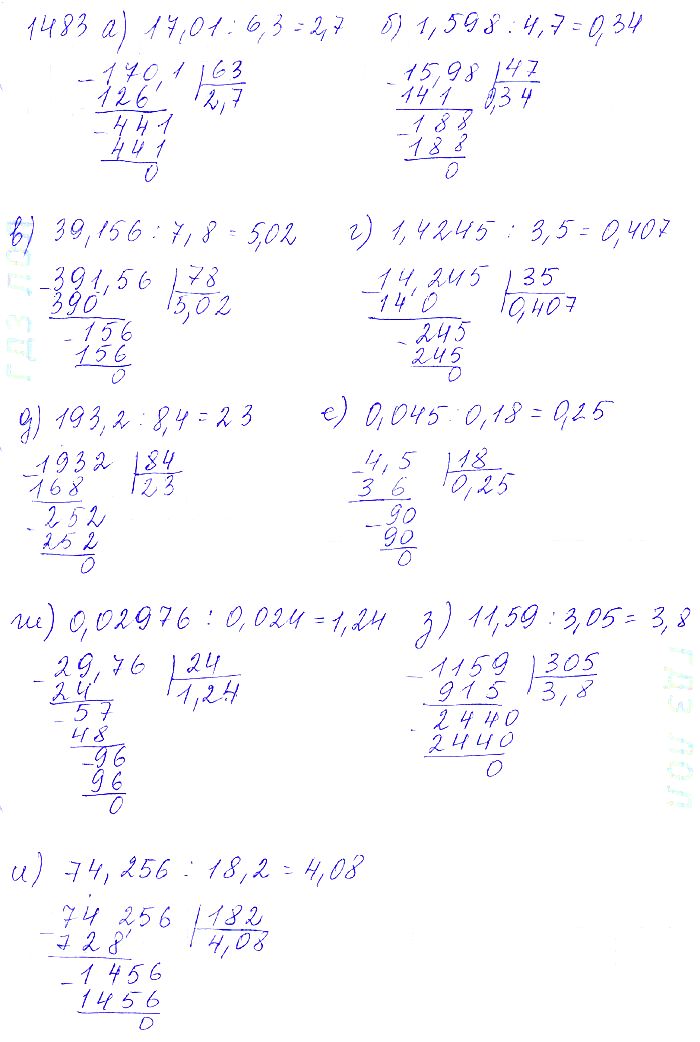 1483 а) 17,01 : 6,3 = 2,7 б) 1,598 : 4,7 = 0,34
- 170,1 63 - 15,98 47
126 2,7 141 0,34
- 441 - 188
441 188
0 0
в) 39,156 : 7,8 = 5,02 г) 1,4245 : 3,5 = 0,407
- 391,56 78 - 14,245 35
390 5,02 140 0,407
- 156 - 245
156 245
0 0
д) 193,2 : 8,4 = 23 е) 0,045 : 0,18 = 0,25
- 1932 84 - 4,5 18
168 23 3 6 0,25
- 252 - 90
252 90
0 0
ж) 0,02976 : 0,024 = 1,24 з) 11,59 : 3,05 = 3,8
- 29,76 24 - 1159 305
24 1,24 915 3,8
- 57 - 2440
48 2440
- 96 0
96
0
и) 74,256 : 18,2 = 4,08
- 74 256 182
728, 4,08
- 1456
1456
0